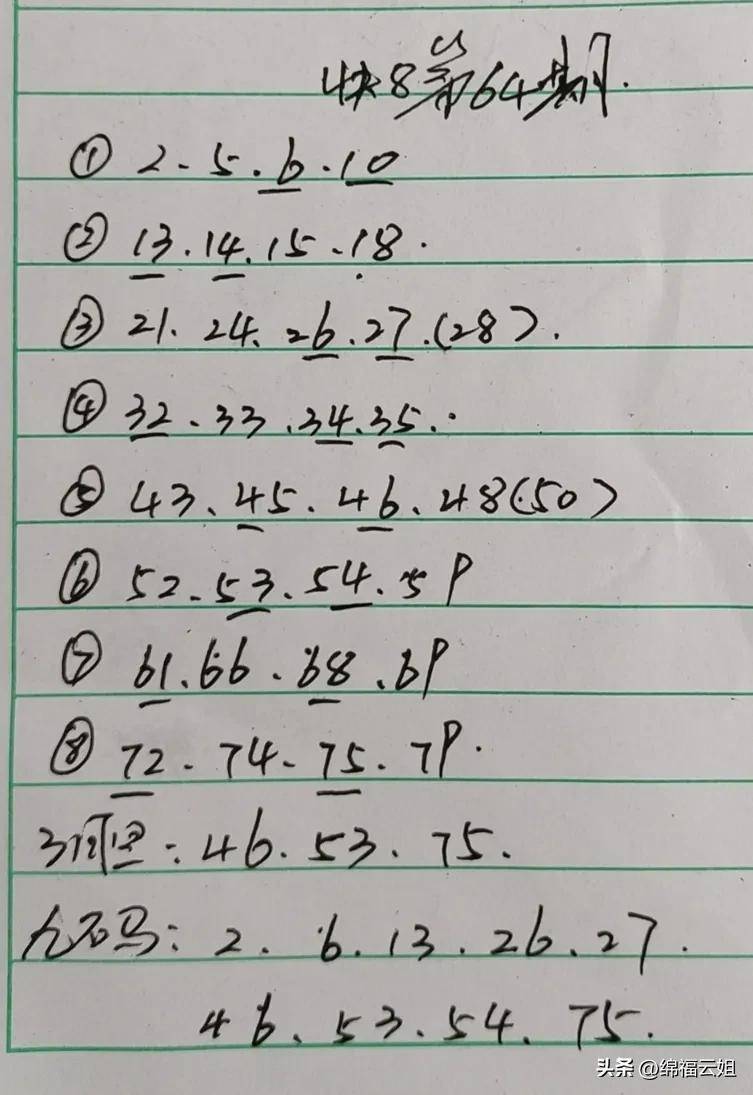 快8第64期.
① 2.5.6.10
② 13.14.15.18.
③ 21.24.26.27.(28).
④ 32.33.34.35..
⑤ 43.45.46.48(50)
⑥ 52.53.54.59
⑦ 61.66.68.69
⑧ 72.74.75.79.
3阿胆:46.53.75.
九石马:2.6.13.26.27.
46.53.54.75.
头条 @绵福云姐